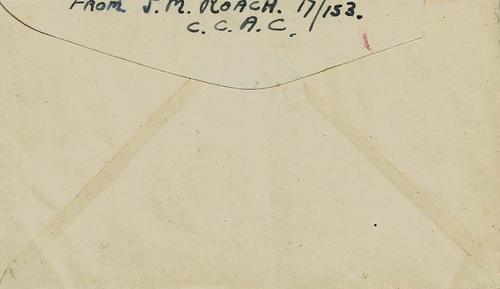 FROM J.M. ROACH. 17/153.
C.C.A.C.